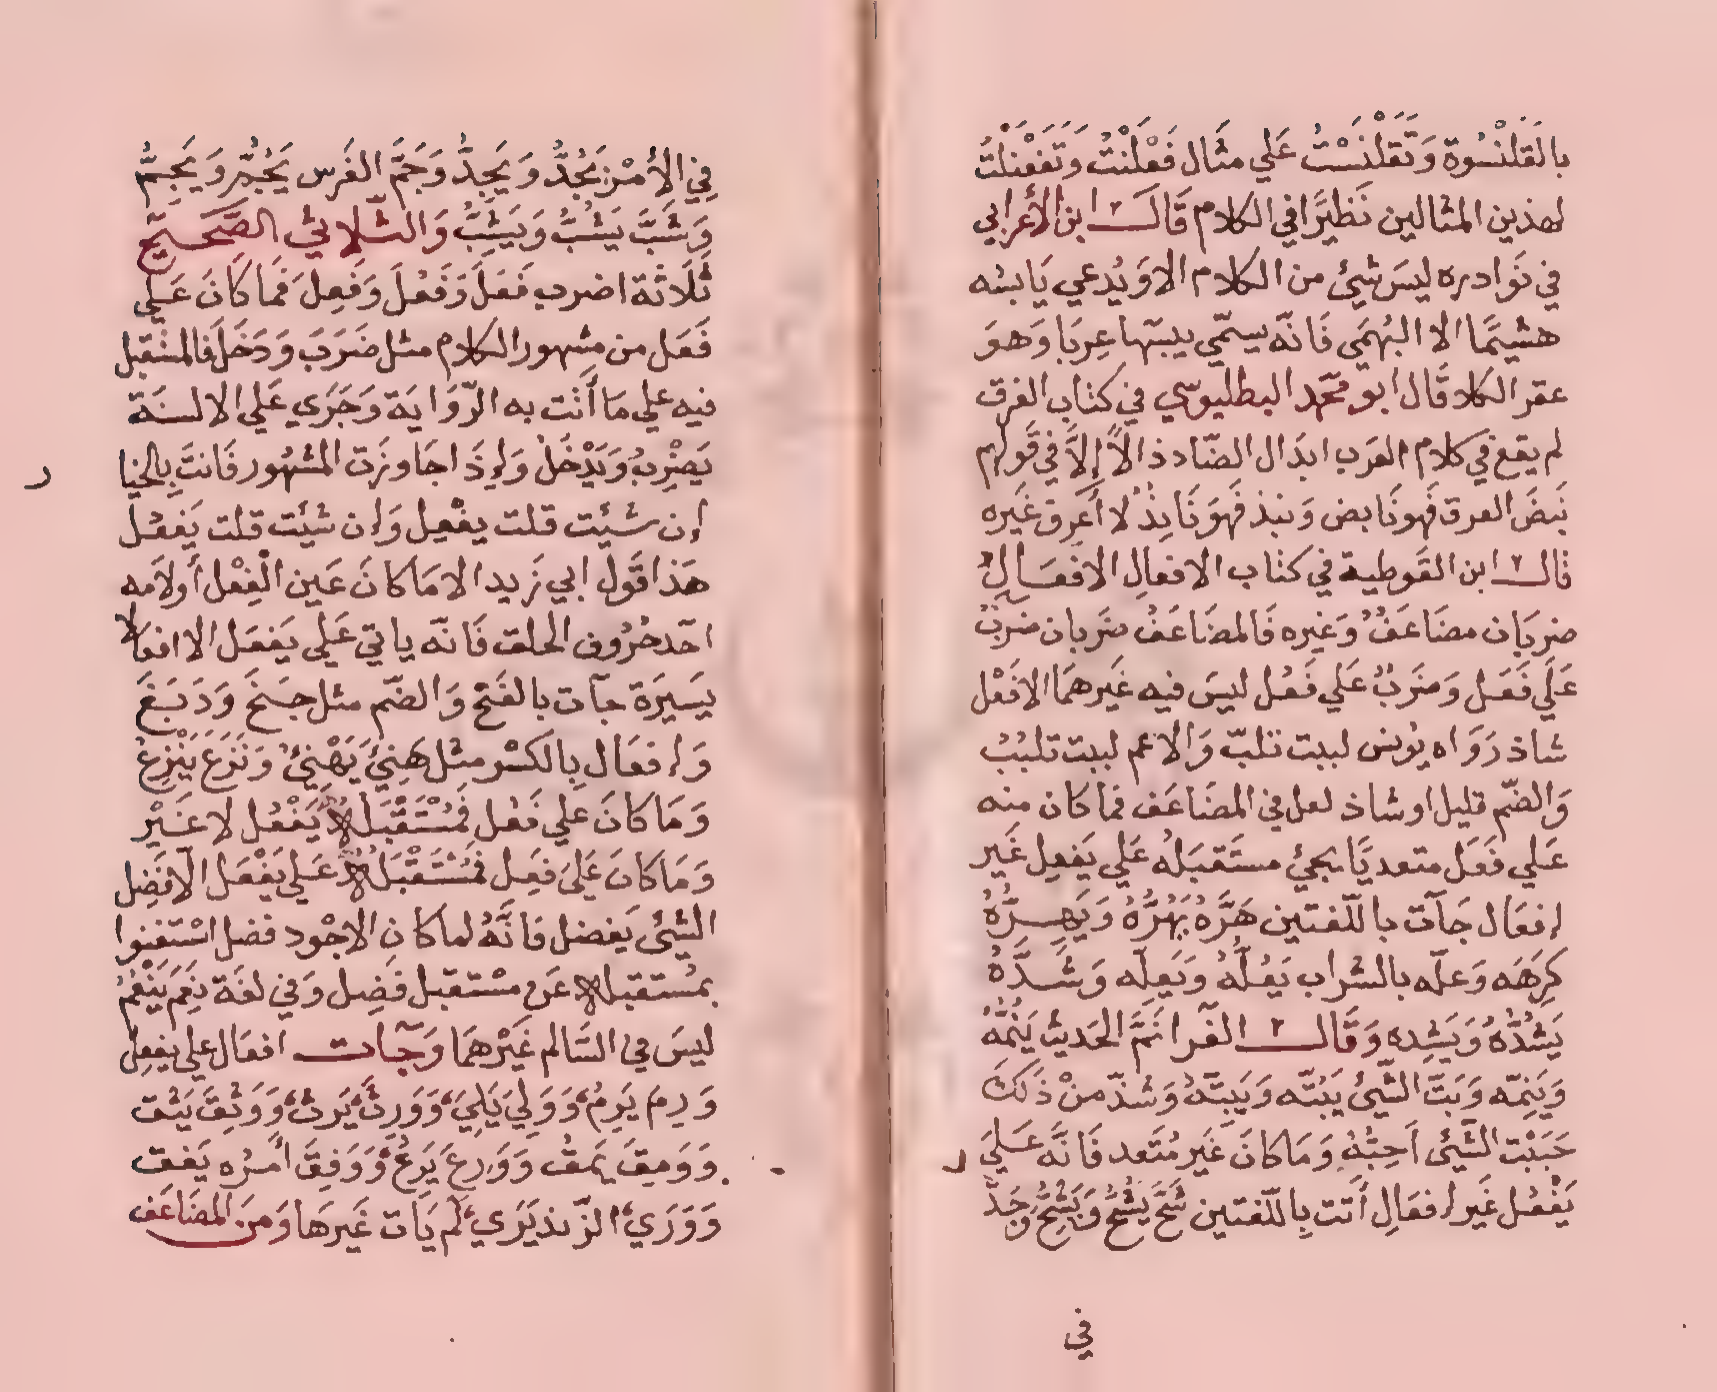 بالقلنْسوة وَتَقَلْنَسْتُ عَلي مثَال فَعْلَنْتُ وَتَفَعْنَلتُ
لهذين المثالين نَظيرًا في الكلام قَالَ ابن الأعرابي
في نَوادره ليسَ شيئ من الكلام الا وَيُدعي يَابسُه
هشيمًا الا البُهمَي فَانه يسمّي يبسها عِربَا وَهوَ
عقر الكلا قَال ابو محمد البطليوسي في كتاب الفرق
لم يقع في كلام العَرب ابدَال الضّاد ذالاً إلاَّ في قَولهم
نَبضَ العرق فَهو نَابض وَنبذ فَهوَ نَابِذٌ لا أَعرق غَيره
قال ابن القَوطية في كتاب الافعالِ الافعَالِ
ضربَان مضَاعَفٌ وَغيره فَالمضَاعَفُ ضَربان ضَربٌ
عَلَي فَعَل وَضَربٌ عَلي فَعُل ليسَ فيه غَيرهمَا الا فَعْل
شاذ رَوَاه يُونس لببت تلبّ وَالاعم لببت تلبُبُ
وَالضّم قليل او شاذ لعل في المضَاعَف فما كان منه
عَلي فَعَل متعديًا يجئ مستَقبَلُه عَلي يَفعِل غَير
إفعَال جَآت باللّغتين هَرَّهُ يَهُرُّهُ وَيَهِرُّهُ
كِرَهَه وَعلّه بالشراب يَعُلّهُ وَيَعِلّه وَشَدَّهُ
يَشُدُّهُ وَيَشِده وَقَالَ الفَرا نَمَّ الحَديث يَنُمُّهُ
وَيَنِمّه وَبَتَّ الشّيئ يَبُتّه وَيَبِتّهُ وَشُذّ منْ ذَلكَ
حَبَبْت الشّيئ اَحِبُّهُ وَمَا كانَ غَير مُتَعد فَانَّه عَليَ
يَفْعُل غَير إفعَالِ أَتت بِاللّغتين شَحَّ يَشُحُّ وَيَشِحُّ وَجَدَّ
في
فِي الأمْن يَجُدُّ وَيَجِدُّ وَجَمَّ الفَرس يَجُمُّ وَيَجِمُّ
وَشَبَّ يَشُبُّ وَيَشِبُّ وَالثّلاثي الصَّحَيح
ثَلاَثَة اضرب فَعَلَ وَفَعُلَ وَفَعِلَ فَمَا كَانَ عَلي
فَعَل من مشهور الكلام مثل ضَرَبَ وَدَخَلَ فالمستقبل
فيه علي مَا أَتت به الرّوَايَة وَجَرَي عَلي الالسنَة
يَضْرِبُ وَيَدْخُلُ وَإذَا جَاوزَت المشهُور فَانتَ بِالخيا
ر
إن شئيت قلت يفْعِل وَإن شيَت قلت يَفعُل
هَذا قَولُ إبي زَيد الا مَا كانَ عَين الْفِعْل أولاَمه
احَد حُرُوف الحلق فَانّه ياتي عَلي يَفعَل الا افعالا
يَسيرَة جآت بالفَتح وَالضّم مثل جَنَحَ وَدَبَغَ
وَإفعَال بِالكَسْر مثل هَنِئَ يَهْنِئُ وَنَزَعَ يَنْزِعُ
وَمَا كانَ علي فَعُل فمُسْتَقْبَلُهُ يَفْعُل لا غَيْر
وَمَا كانَ عَلَي فَعِل فمُسْتَقْبَلُهُ عَلي يَفْعَل الّا فَضِل
الشّئي يَفضل فَانَّهُ لما كان الاجْود فضل اسْتغنوا
بمُستقبله عَن مسْتقبل فَضِل وَفي لغَة نِعِمَ يَنْعُمُ
ليسَ في السَّالم غَيْرهمَا وَجَآت افعَال علي يفعِل
وَرِمَ يَرِمُ وَوَلِيَ يَلِيَ وَوَرِثَ يَرِثُ وَوَثِقَ يَثق
وَوَمِقَ يَمِقُ وَوَرِعَ يَرِعُ وَوَفِقَ أَمرُه يَفق
وَوَرَي الزّند يَرَي لَم يَات غَيرهَا وَمنَ المضَاعَف